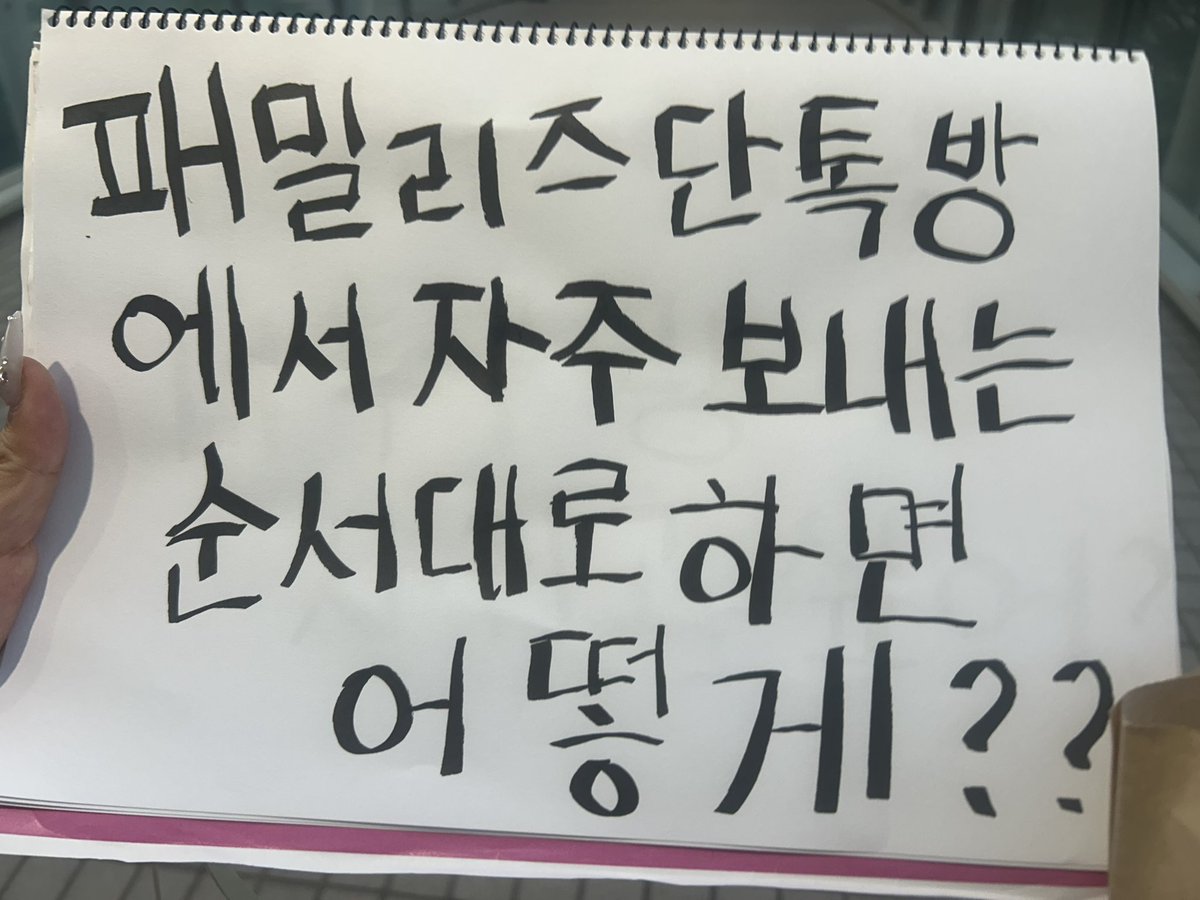 패밀리즈 단톡방
에서 자주 보내는
순서대로 하면
어떻게??